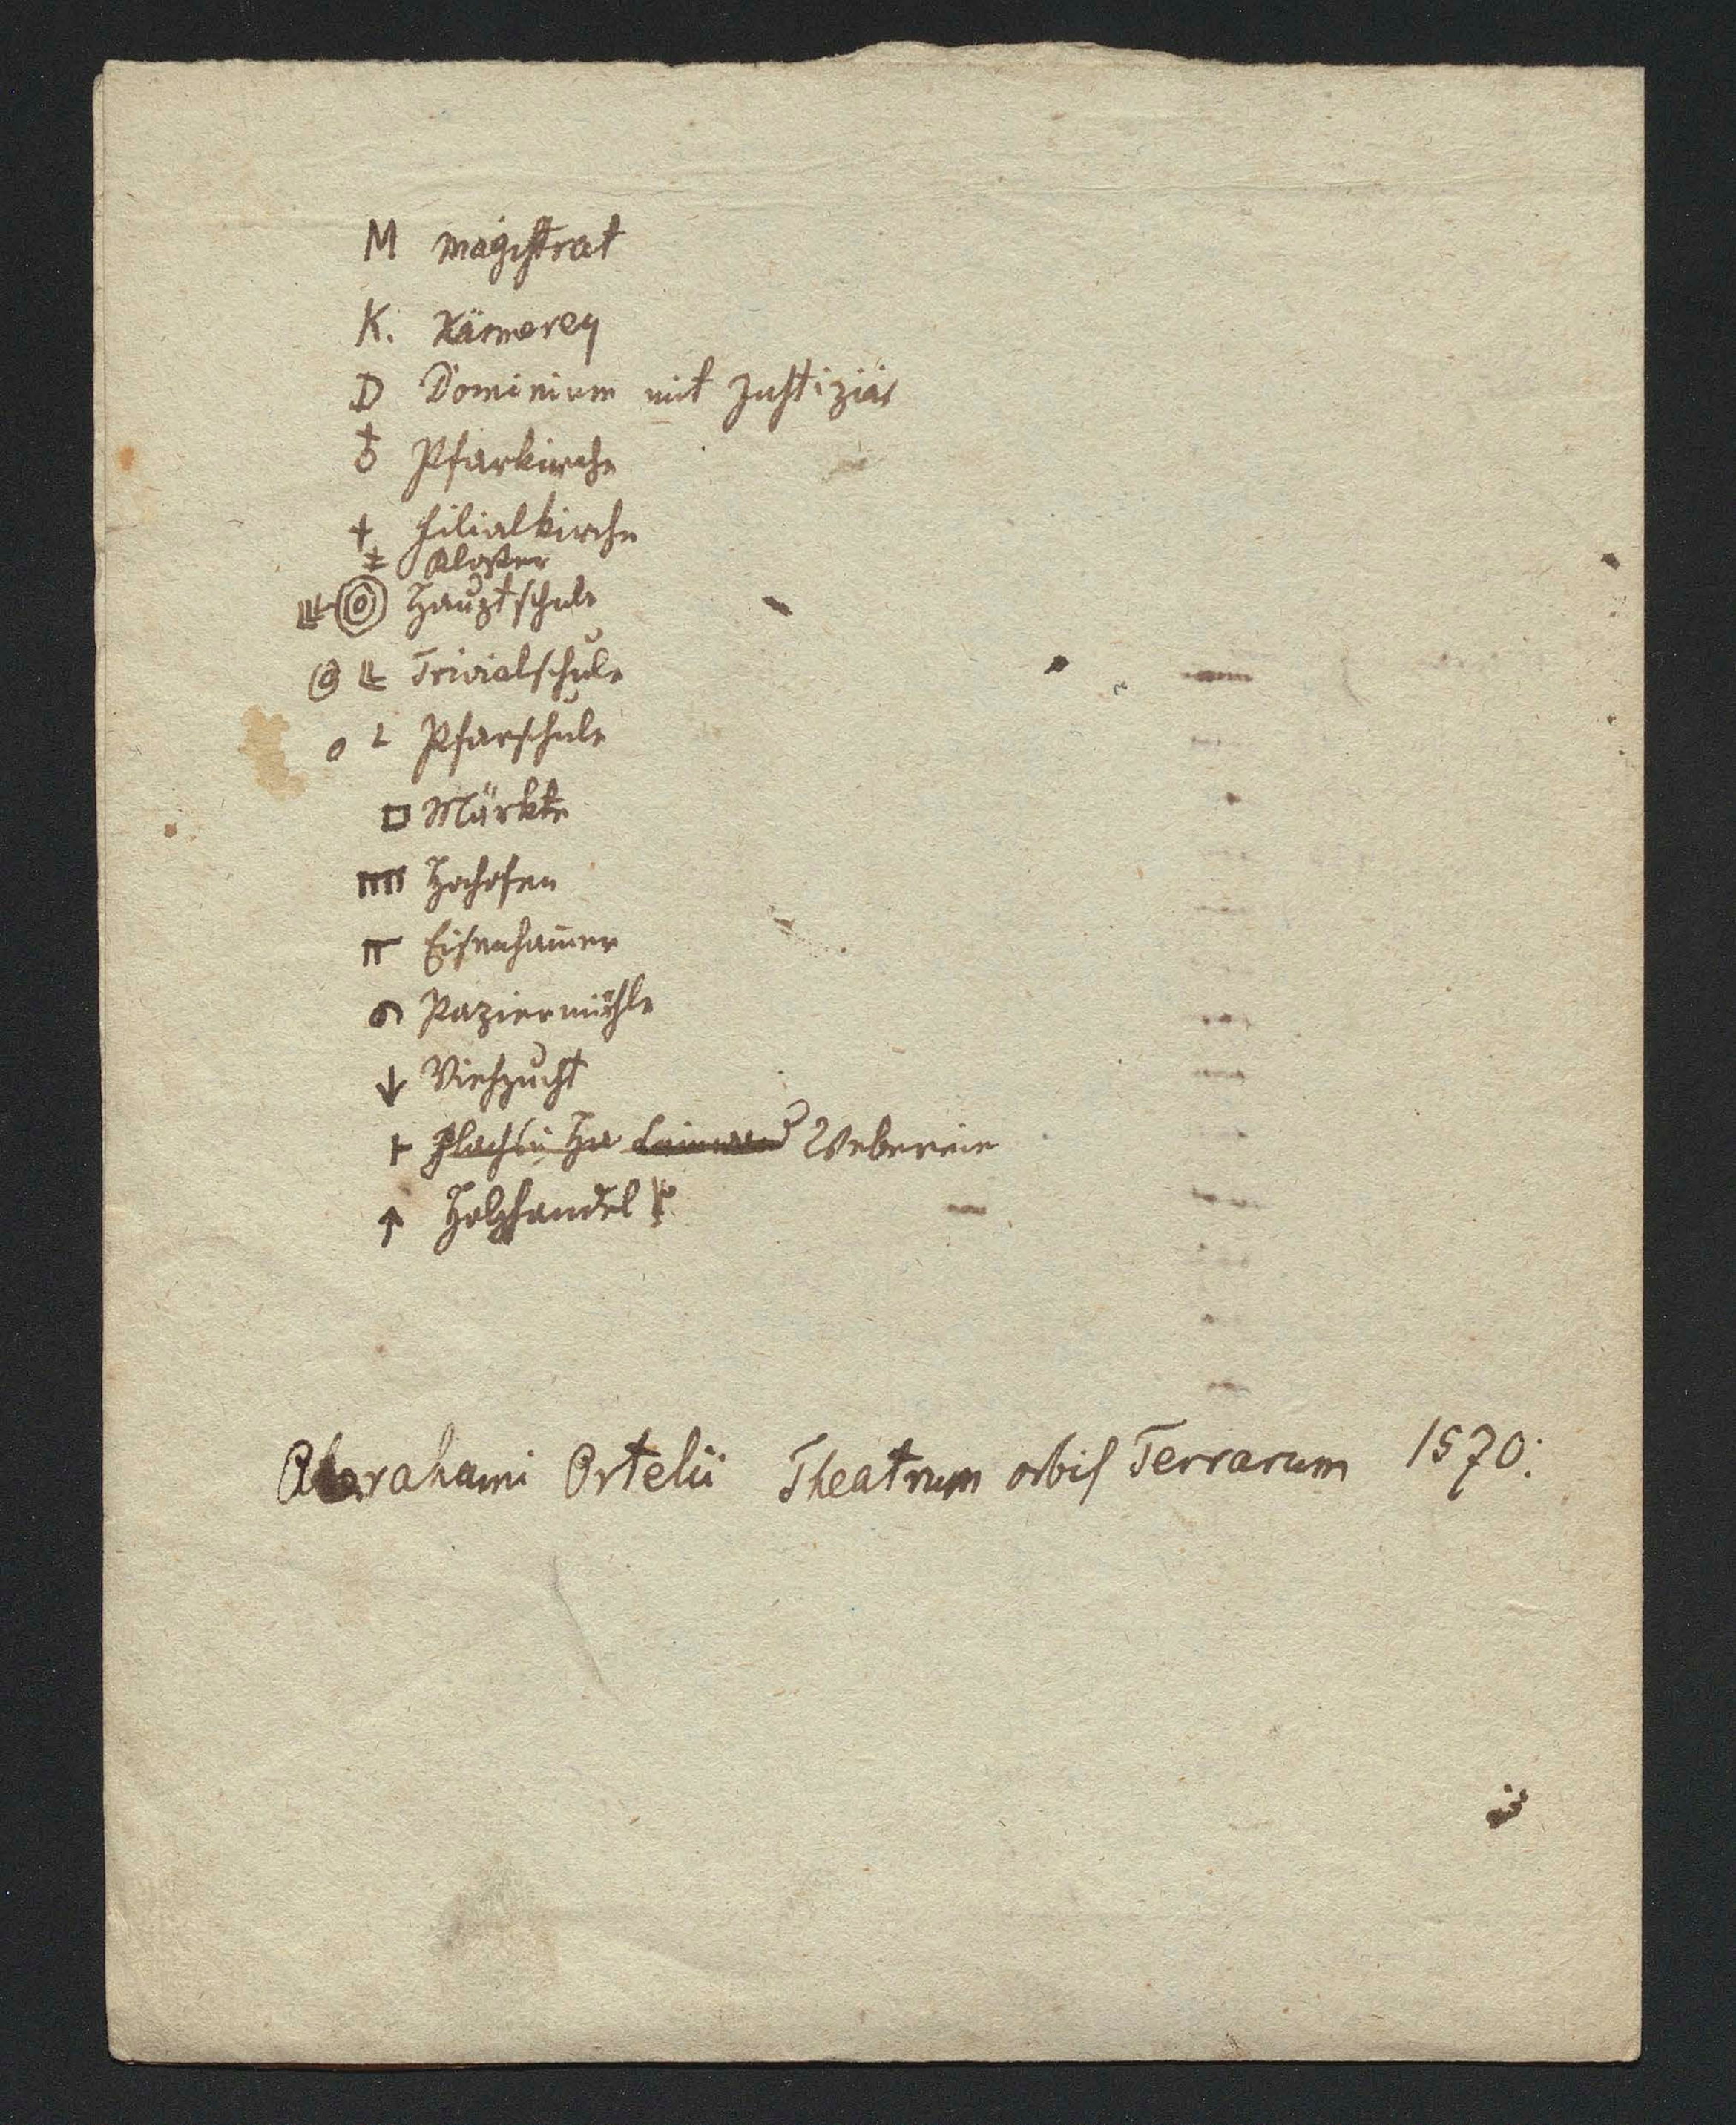 M Magistrat
K. Kämerey
D Dominium mit Justiziär
♁ Pfarkirche
+ Filialkirche
‡ Kloster
Hauptschule
Trivialschule
Pfarschule
□ Märkte
Hochofen
Eisenham̅er
Papiermühle
↓ Viehzucht
Weberein
↑ Holzhandel
Abrahami Ortelii Theatrum orbis Terrarum 1570.